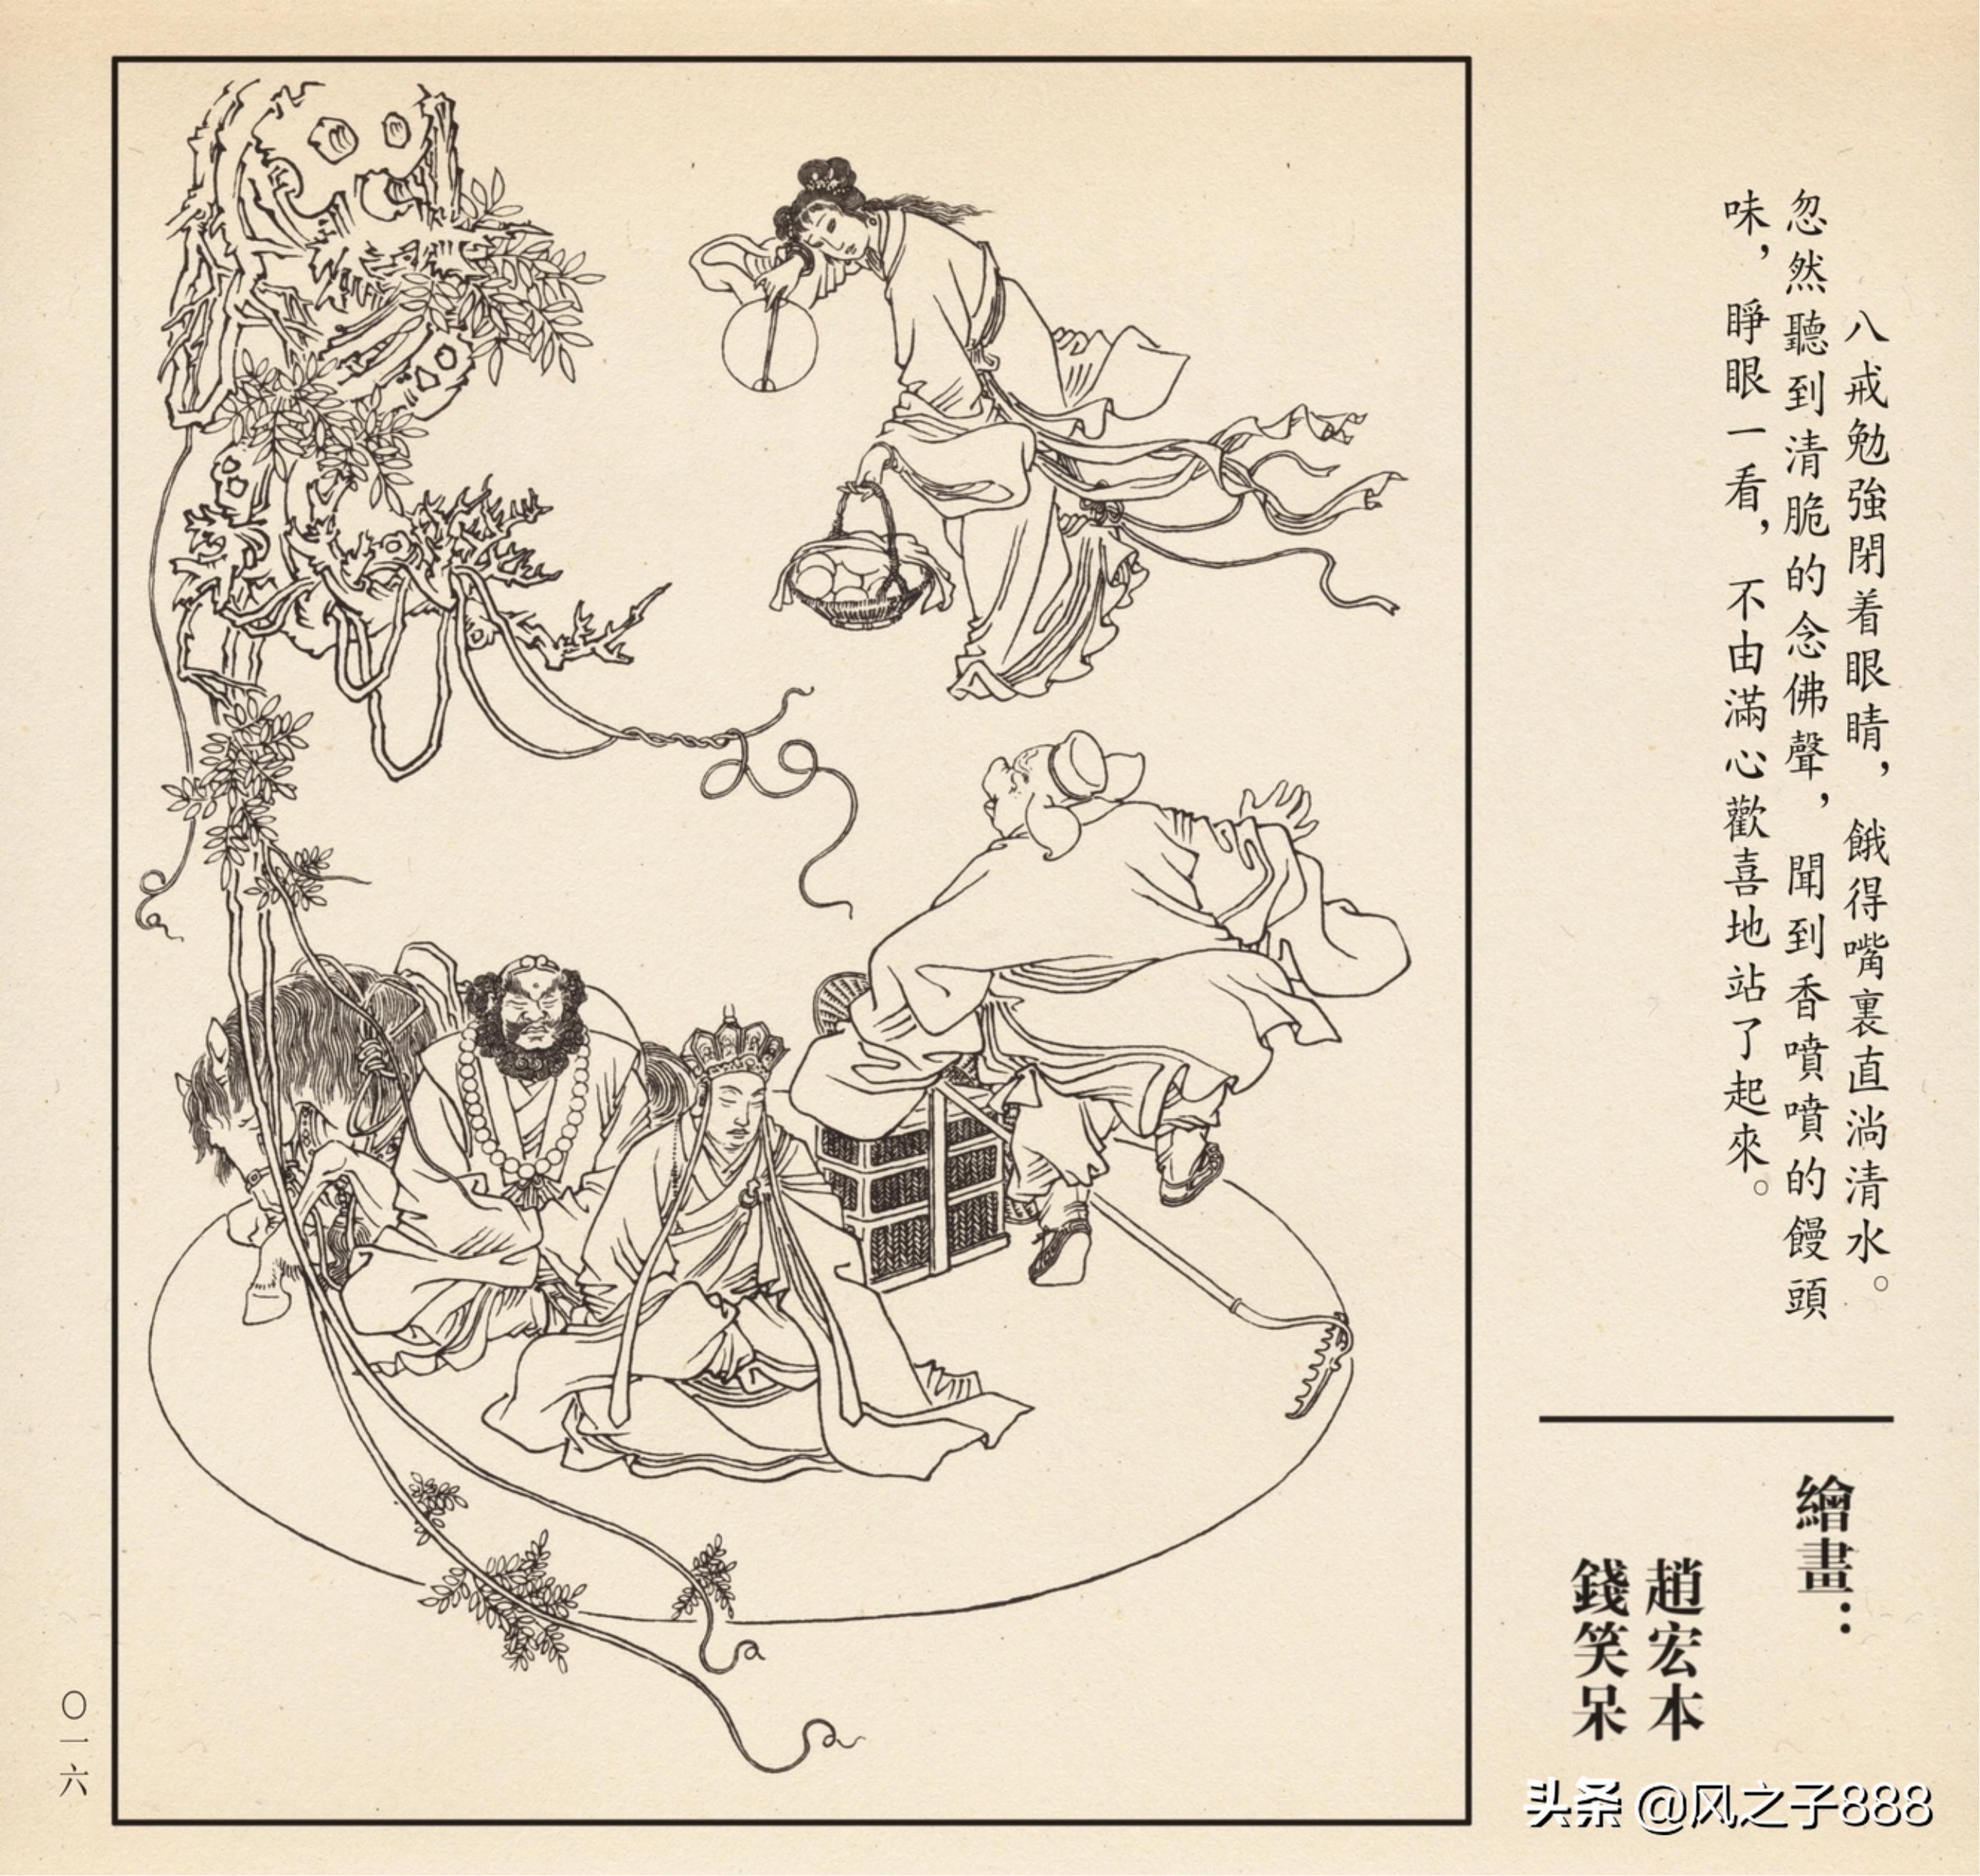 八戒勉強閉着眼睛，餓得嘴裏直淌清水。
忽然聽到清脆的念佛聲，聞到香噴噴的饅頭
味，睜眼一看，不由滿心歡喜地站了起來。
繪畫：
趙宏本
錢笑呆
〇一六
头条 @风之子888